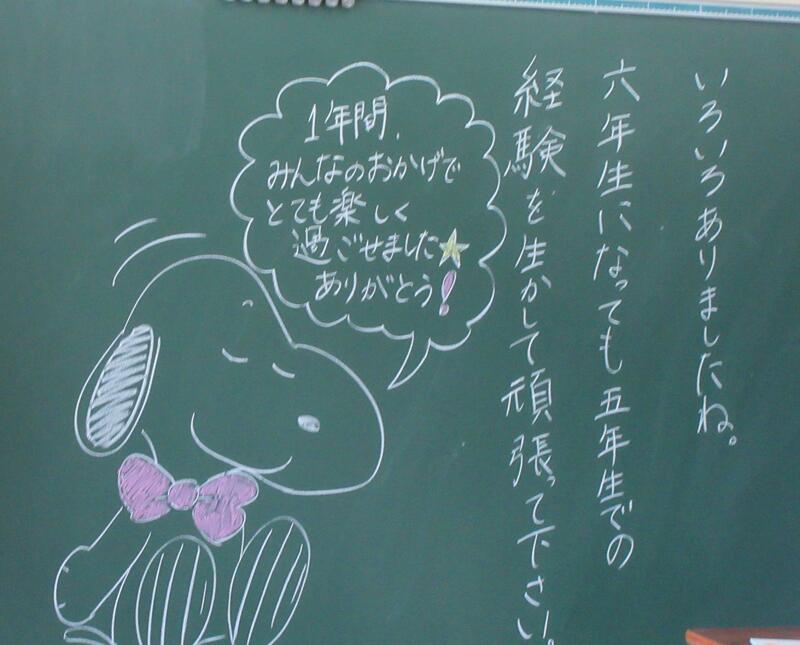 いろいろありましたね。
六年生になっても五年生での
経験を生かして頑張って下さい。
1年間、
みんなのおかげで
とても楽しく
過ごせました★
ありがとう!